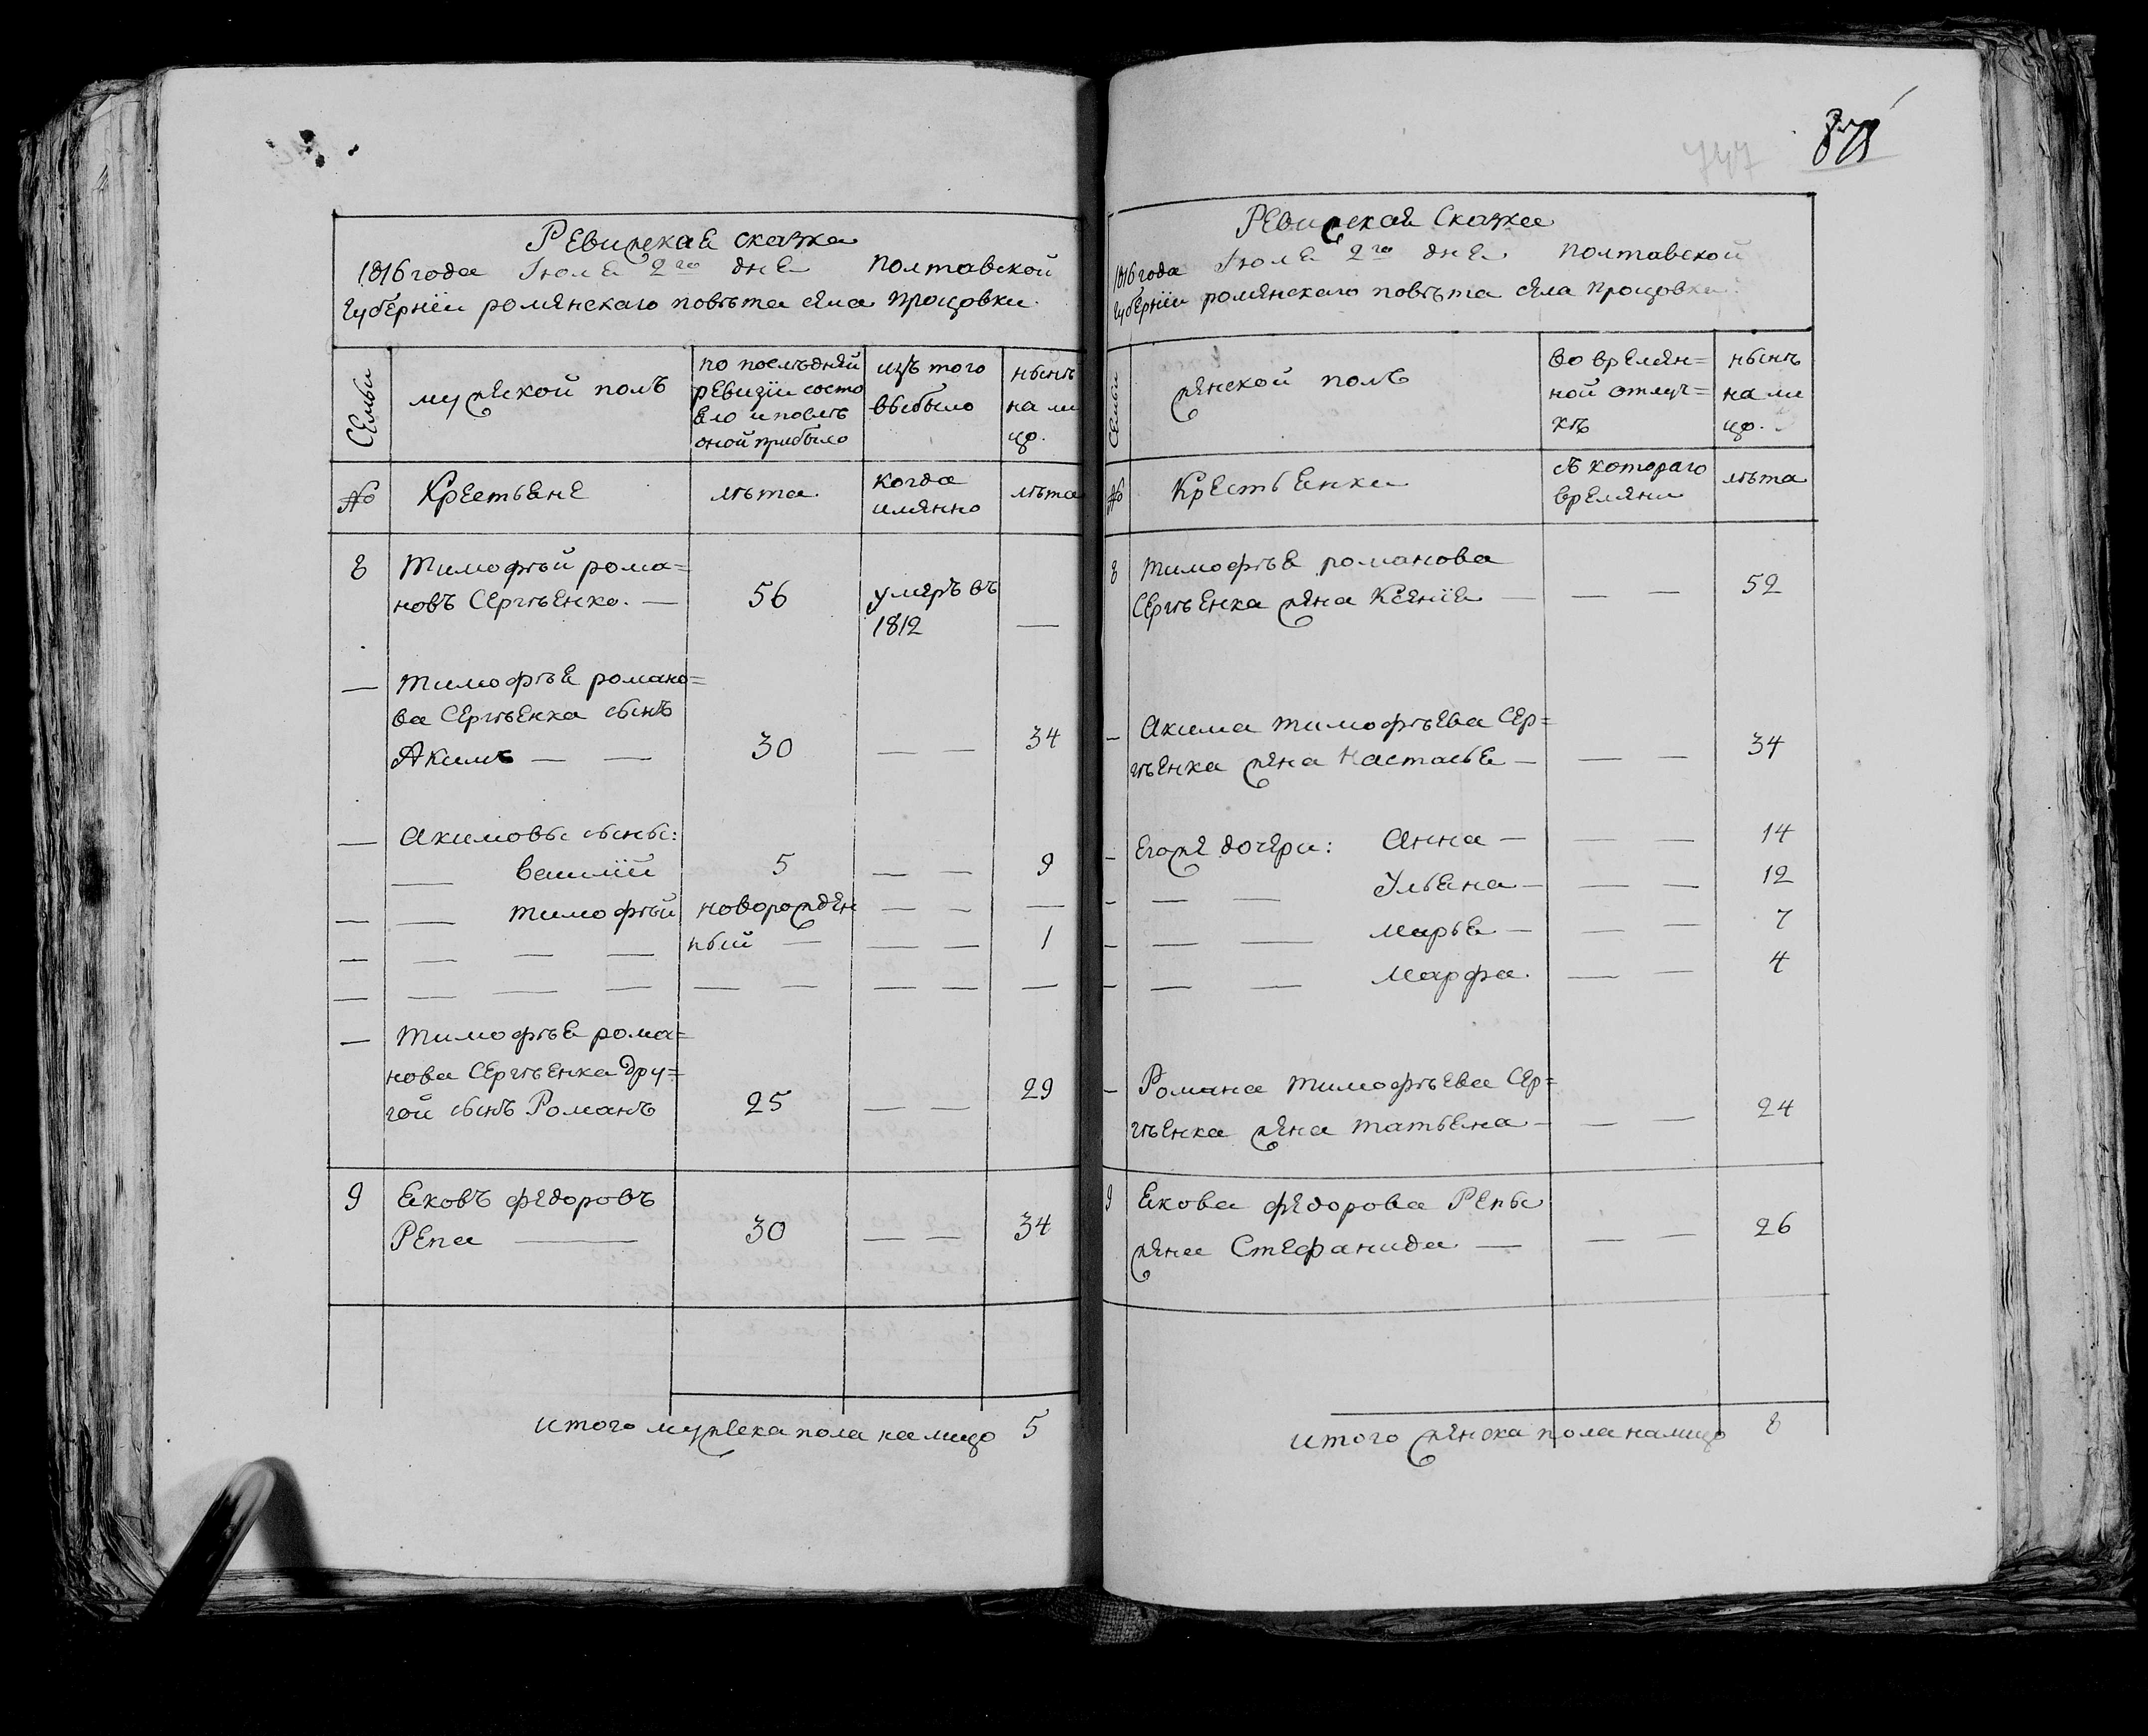 Ревижская сказка
1816 года Іюля 2го дня Полтавской
Губерніи роменскаго повѣта села Процовки.
Семьи
мужеской полъ
по послѣдней
ревизіи состо
яло и послѣ
оной прибыло
изъ того
выбыло
нынѣ
на ли
цо.
№
Крестьяне
лѣта
когда
имянно
лѣта
8
Тимофѣй рома=
новъ Сергѣенко. —
56
умеръ въ
1812
—
— Тимофѣя романо=
ва Сергѣенка сынъ
Акимъ — —
30
— —
34
— Акимовы сыны:
— василій
5
— —
9
— — тимофѣй
новорожден
— — —
— — — —
ный —
— —
1
— — — — — — — — —
— Тимофѣя рома=
нова Сергѣенка дру=
гой сынъ Романъ
25
— —
29
9
Яковъ федоровъ
Репа —
30
— —
34
итого мужеска пола налицо 5
747
Ревижская Сказка
1816 года Іюля 2го дня Полтавской
Губерніи роменскаго повѣта села процовки.
Семьи
женской полъ
во времян=
ной отлуч=
кѣ
нынѣ
на ли
цо.
№
Крестьянки
съ котораго
времяни
лѣта
8
Тимофѣя романова
Сергѣенка жена Ксенія —
— —
52
— Акима тимофѣева Сер=
гѣенка жена Настасья —
— —
34
— Егоже дочери: Анна —
— —
14
— — — Ульяна —
— —
12
— — — марья —
— —
7
— — — марфа.
— —
4
— Романа тимофѣева Сер=
гѣенка жена татьяна —
— —
24
9
Якова федорова Репы
жена Стефанида —
— —
26
итого женска пола налицо 8